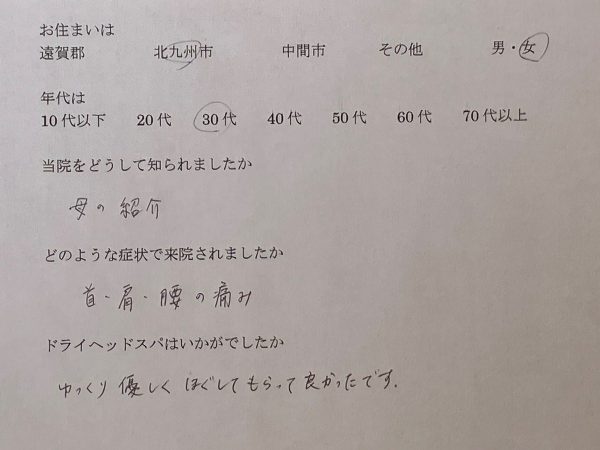 お住まいは
遠賀郡 北九州市 中間市 その他 男・女
年代は
10代以下 20代 30代 40代 50代 60代 70代以上
当院をどうして知られましたか
母の紹介
どのような症状で来院されましたか
首・肩・腰の痛み
ドライヘッドスパはいかがでしたか
ゆっくり優しくほぐしてもらって良かったです.